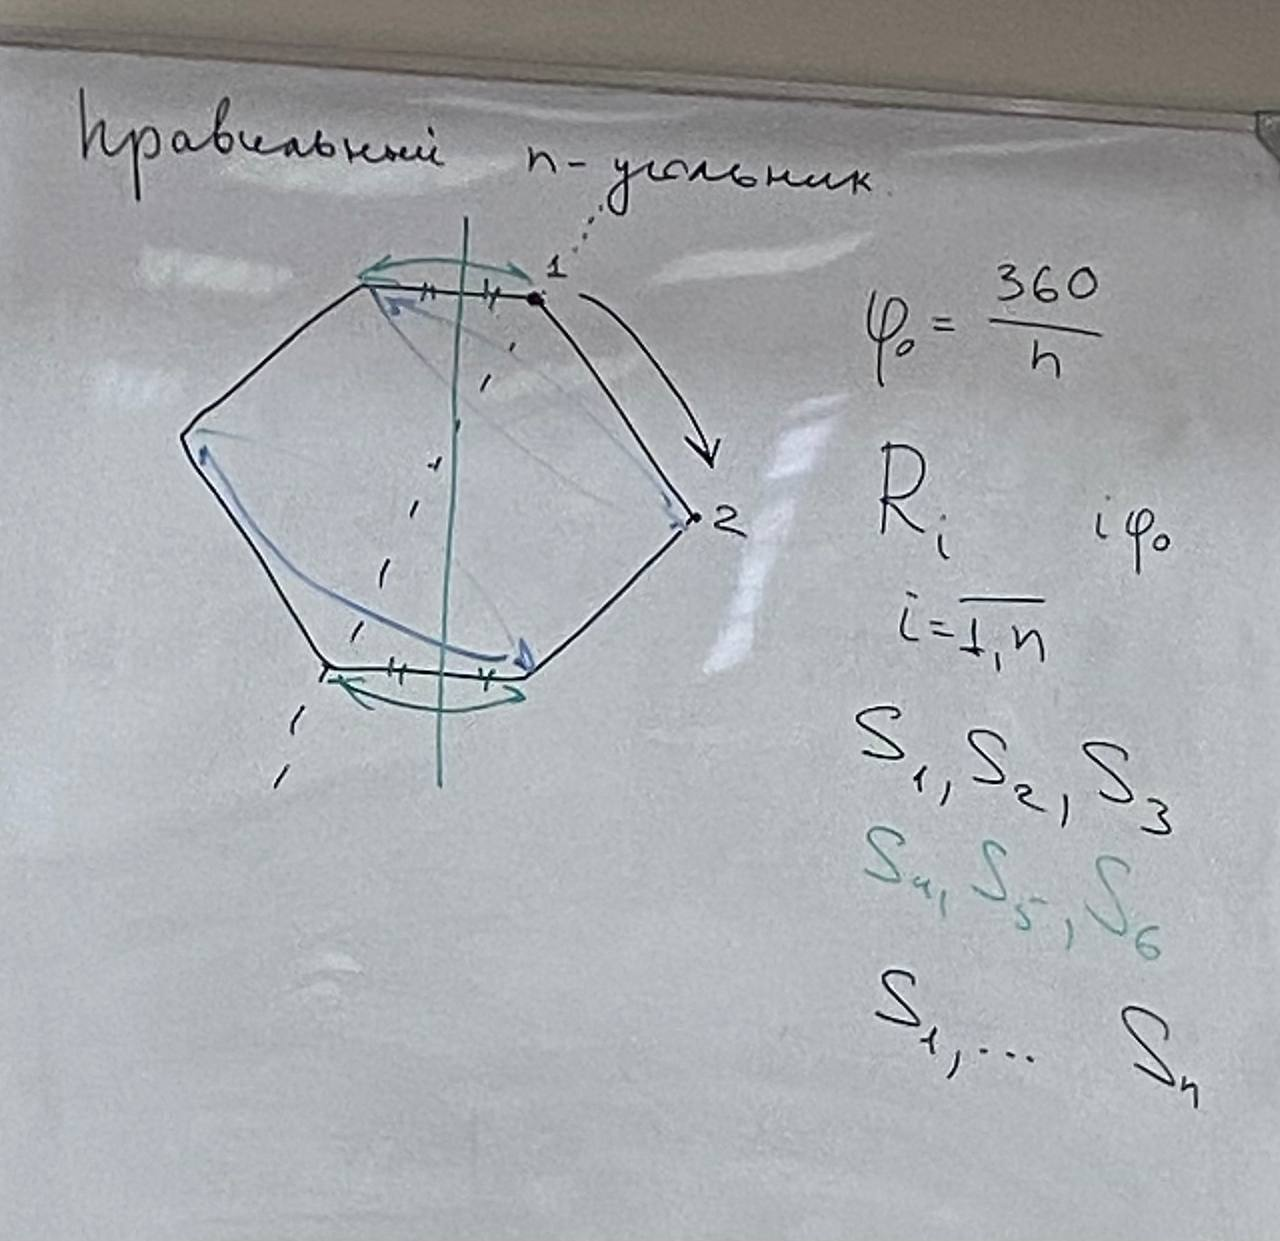 Правильный n-угольник.
1
2
φ₀ = 360/n
Rᵢ iφ₀
i = 1,n
S₁, S₂, S₃
S₄, S₅, S₆
S₁, ... Sₙ